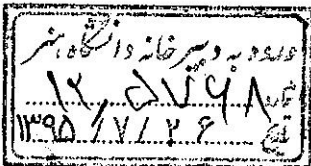 ورود به دبیرخانه دانشگاه هنر
شماره ۱۲,۵۷۶۸
تاریخ ۱۳۹۵/۷/۲۶